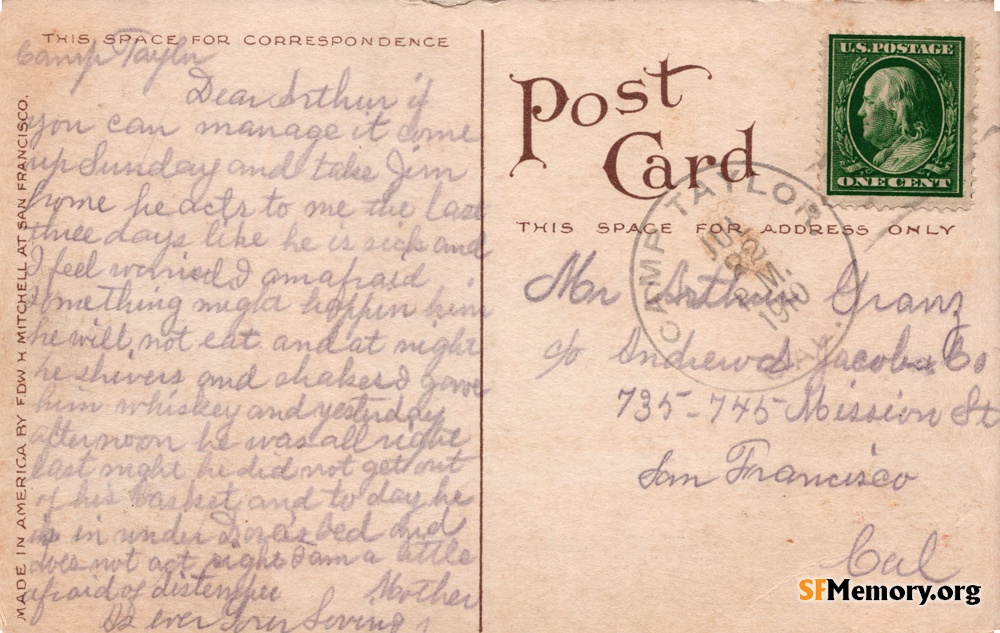 THIS SPACE FOR CORRESPONDENCE
Camp Taylor
Dear Arthur if
you can manage it come
up Sunday and take Jim
home he acts to me the last
three days like he is sick and
I feel worried I am afraid
something might happen him
he will not eat and at night
he shivers and shakes I gave
him whiskey and yesterday
afternoon he was all right
last night he did not get out
of his basket and to day he
is in under Doras bed and
does not act right I am a little
afraid of distemper Mother
As ever your loving
MADE IN AMERICA BY EDW. H. MITCHELL AT SAN FRANCISCO.
Post
Card
THIS SPACE FOR ADDRESS ONLY
U.S. POSTAGE
ONE CENT
CAMP TAYLOR
CAL.
1910
Mr Arthur Granz
c/o Andrew Jacobs Co
735-745 Mission St
San Francisco
Cal
SFMemory.org